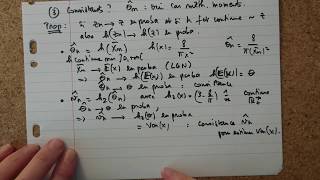 ③ Consistency ? θ̂n : oui car méth. moments.
Prop : si Zn → Z en proba et si h fct continue
alors h(Zn) → h(Z) en proba.
• θ̂n = h(X̄n) h(x) = 8/πx² θ̂n = 8/π(X̄n)²
h continue sur ]0,+∞[
X̄n → E(X) en proba (LGN)
⇒ θ̂n → h(E(X)) en proba h(E(X)) = θ
θ̂n → θ en proba : consistance
• = h₂(θ̂n) avec h₂(x) = continue
θ̂n → θ en proba,
⇒ → h₂(θ) en proba
= Var(X) : consistance
pour estimer Var(X).